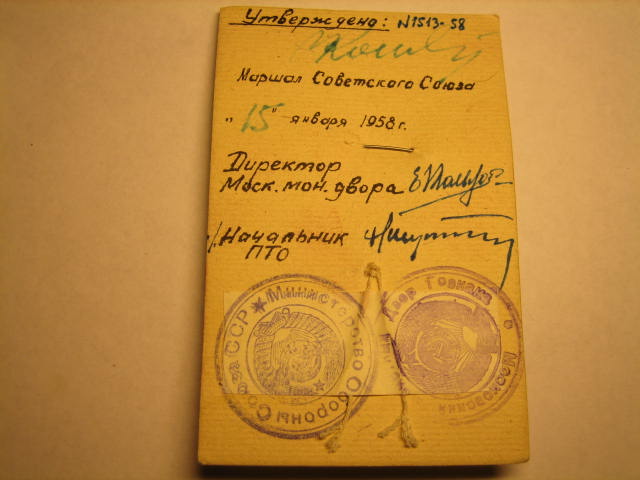 Утверждено: N1513-58
Маршал Советского Союза
„15" января 1958 г.
Директор
Моск. мон. двора
Начальник
ПТО
Министерство Обороны Союза ССР
Двор Гознака
Московский